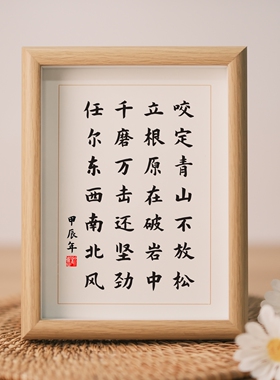 咬定青山不放松
立根原在破岩中
千磨万击还坚劲
任尔东西南北风
甲辰年